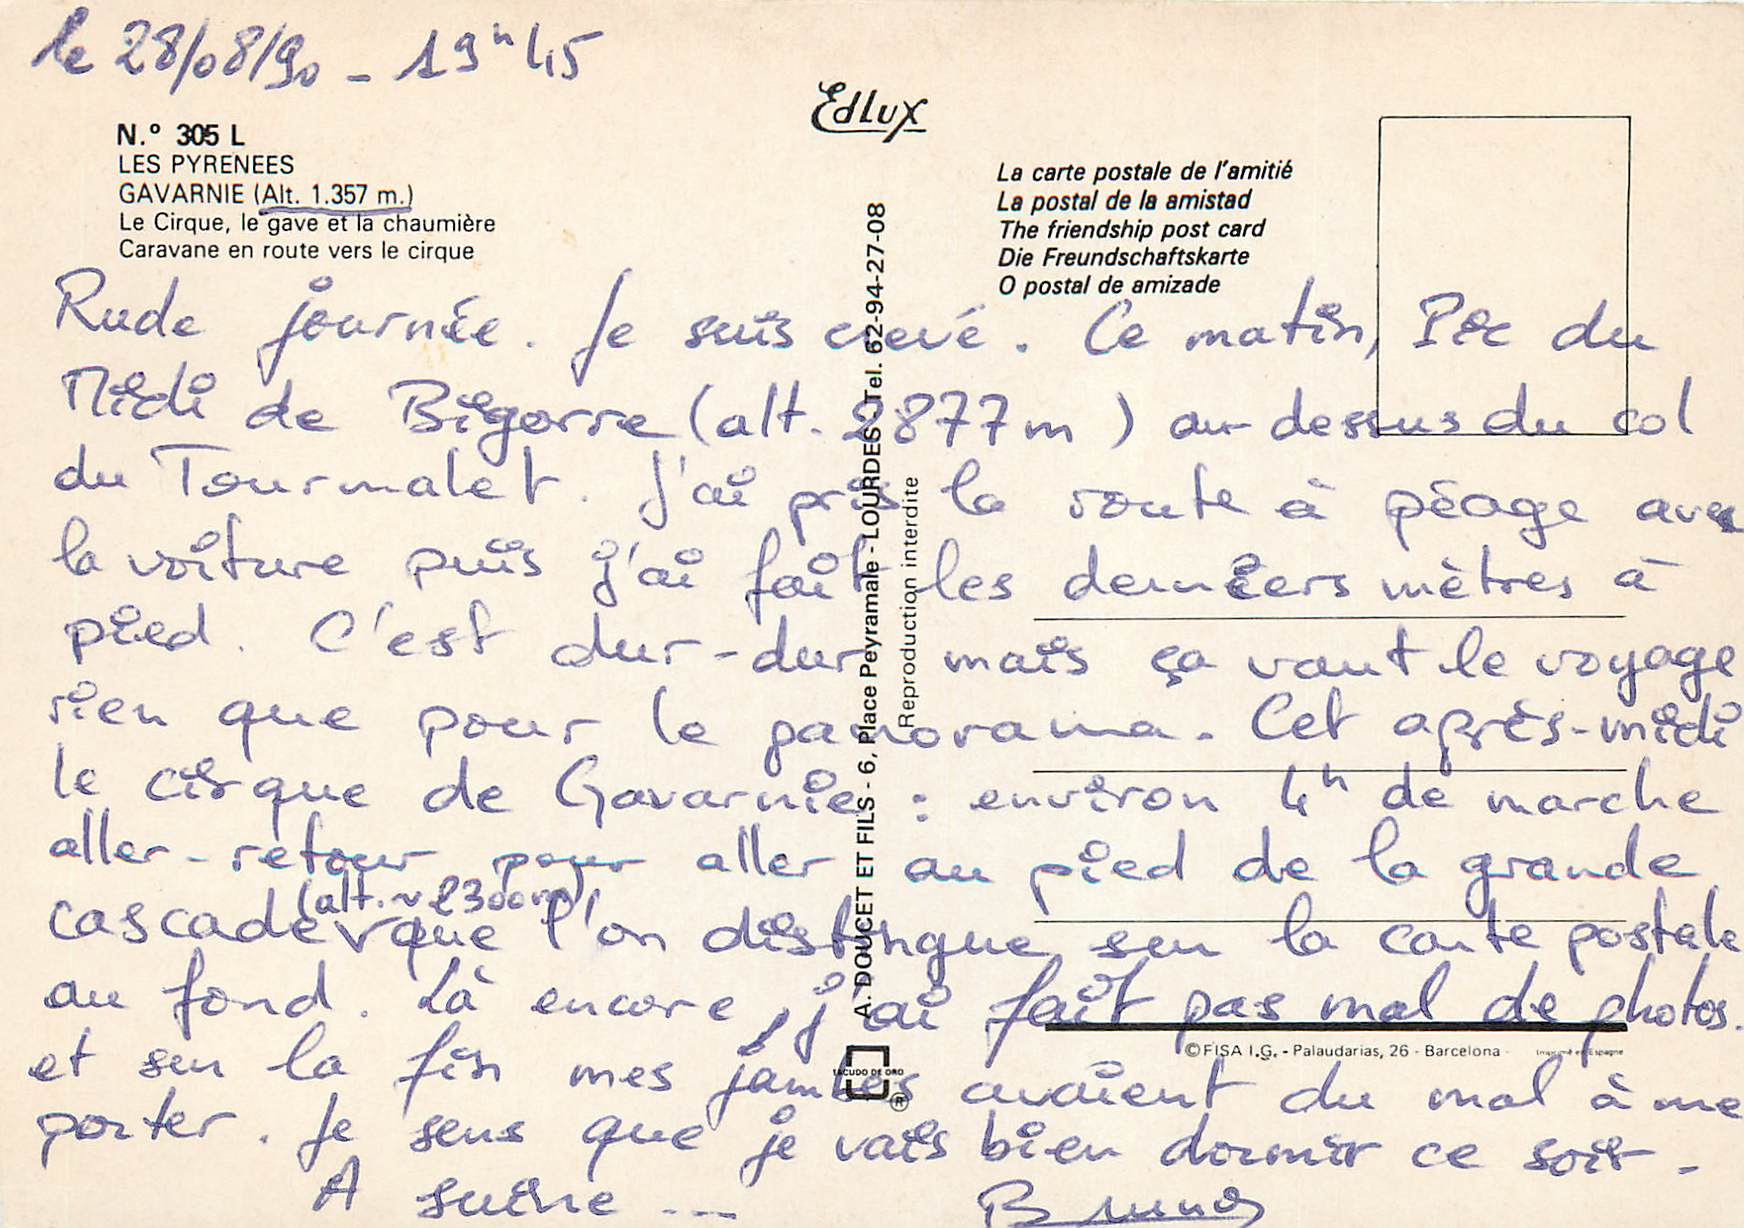 le 28/08/90 - 19h45
Edlux
N.º 305 L
LES PYRENEES
GAVARNIE (Alt. 1.357 m.)
Le Cirque, le gave et la chaumière
Caravane en route vers le cirque
La carte postale de l'amitié
La postal de la amistad
The friendship post card
Die Freundschaftskarte
O postal de amizade
A. DOUCET ET FILS - 6, Place Peyramale - LOURDES - Tel. 62-94-27-08
Reproduction interdite
Rude journée. Je suis crevé. Ce matin, Pic du
Midi de Bigorre (alt. 2877m) au-dessus du col
du Tourmalet. J'ai pris la route à péage avec
la voiture puis j'ai fait les derniers mètres à
pied. C'est dur-dur mais ça vaut le voyage
rien que pour le panorama. Cet après-midi
le cirque de Gavarnie : environ 4h de marche
aller-retour pour aller au pied de la grande
(alt. ~ 2300m)
cascade que l'on distingue sur la carte postale
au fond. Là encore, j'ai fait pas mal de photos.
et sur la fin mes jambes avaient du mal à me
porter. Je sens que je vais bien dormir ce soir -
A suivre ...
Bruno
©FISA I.G. - Palaudarias, 26 - Barcelona
Imprimé en Espagne
ESCUDO DE ORO
®